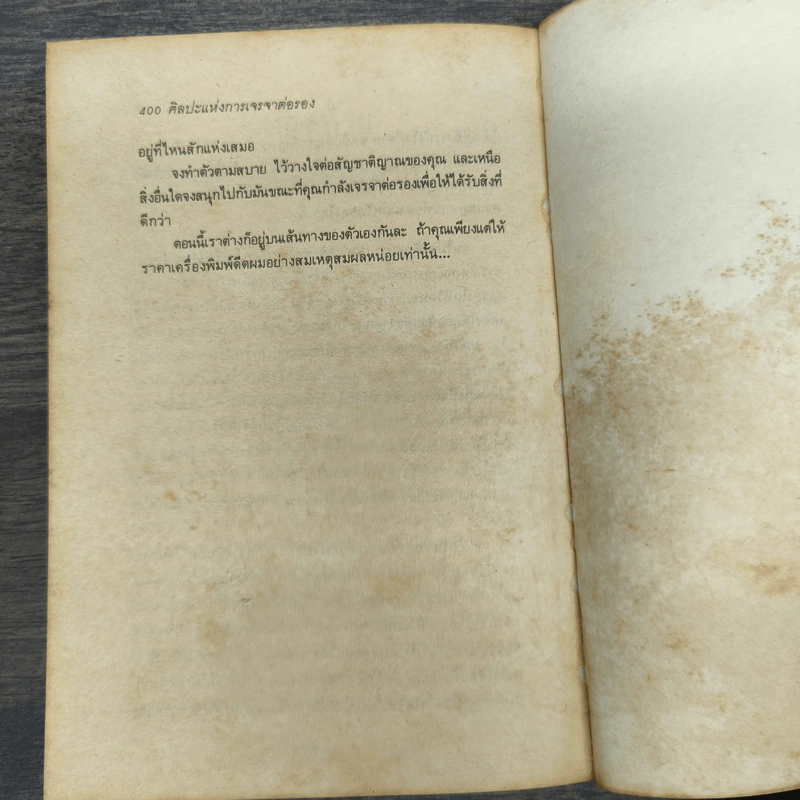 400 ศิลปะแห่งการเจรจาต่อรอง
อยู่ที่ไหนสักแห่งเสมอ
จงทำตัวตามสบาย ไว้วางใจต่อสัญชาติญาณของคุณ และเหนือ
สิ่งอื่นใดจงสนุกไปกับมันขณะที่คุณกำลังเจรจาต่อรองเพื่อให้ได้รับสิ่งที่
ดีกว่า
ตอนนี้เราต่างก็อยู่บนเส้นทางของตัวเองกันละ ถ้าคุณเพียงแต่ให้
ราคาเครื่องพิมพ์ดีดผมอย่างสมเหตุสมผลหน่อยเท่านั้น...